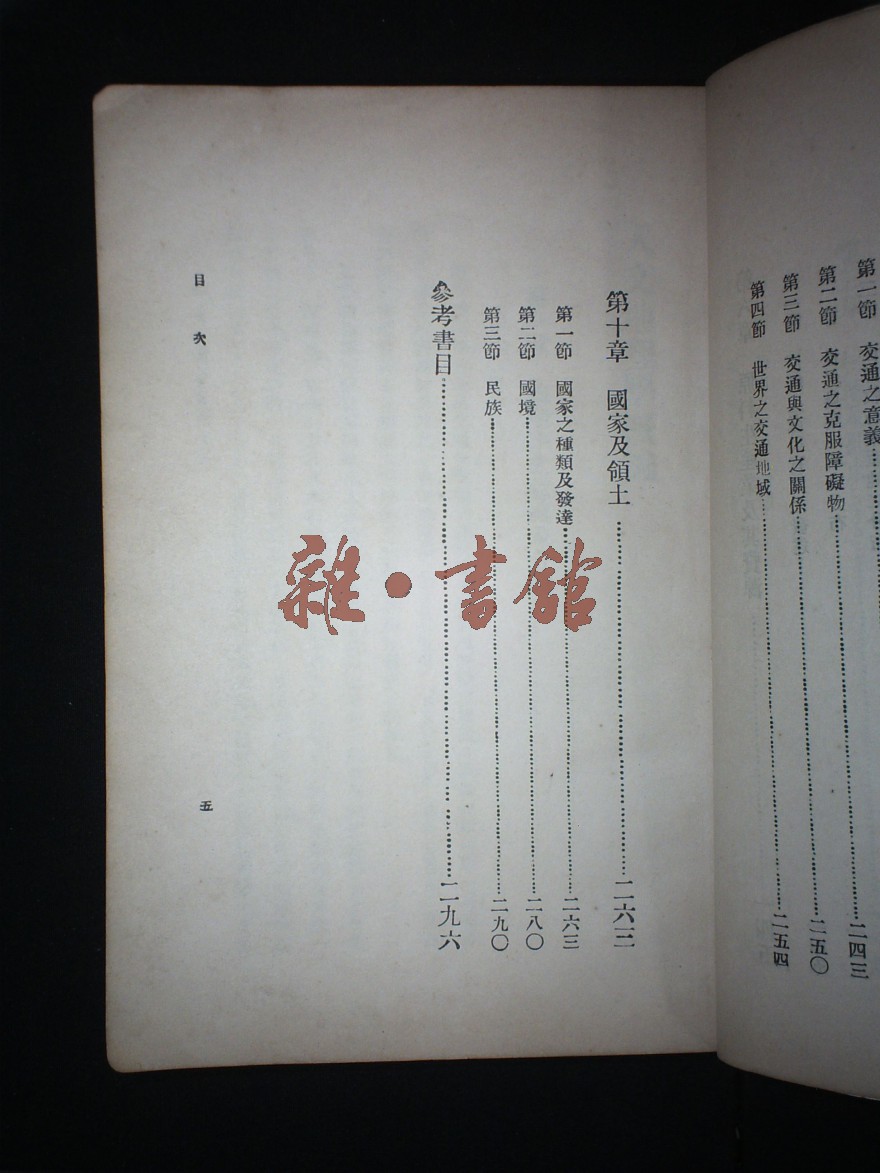 第一節 交通之意義……二四三
第二節 交通之克服障礙物……二五〇
第三節 交通與文化之關係……
第四節 世界之交通地域……二五四
第十章 國家及領土……二六三
第一節 國家之種類及發達……二六三
第二節 國境……二八〇
第三節 民族……二九〇
參考書目……二九六
目次
五
雜·書館